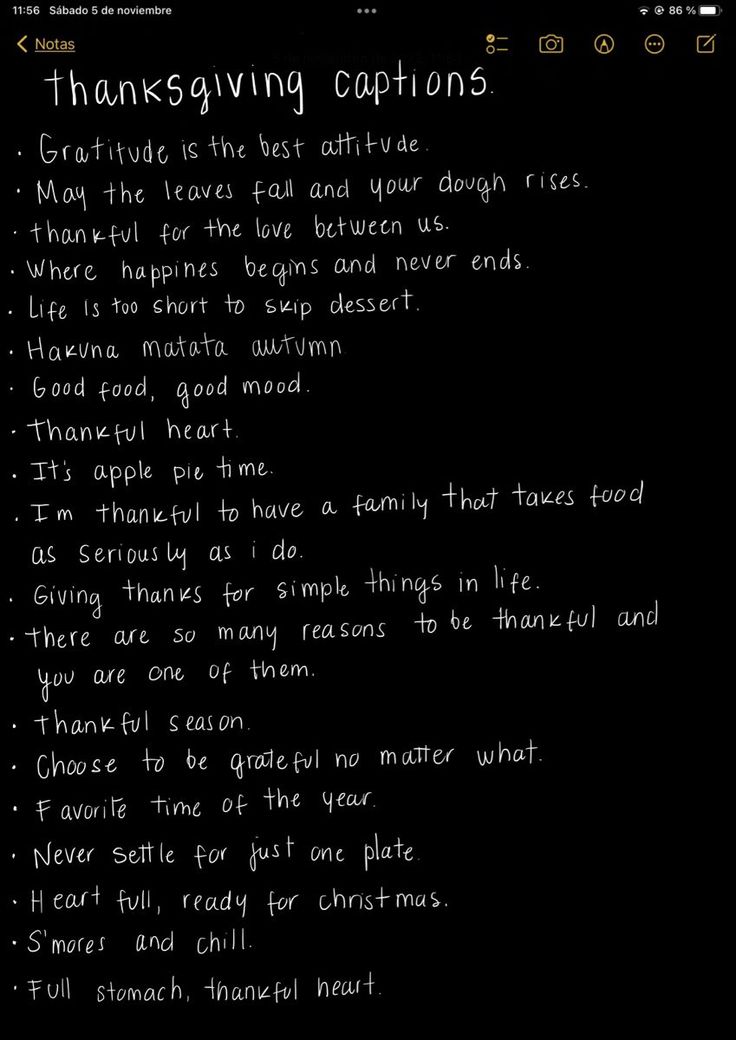 11:56 Sábado 5 de noviembre
86 %
Notas
Thanksgiving captions.
· Gratitude is the best attitude.
· May the leaves fall and your dough rises.
· thankful for the love between us.
· Where happines begins and never ends.
· Life is too short to skip dessert.
· Hakuna matata autumn
· Good food, good mood.
· Thankful heart.
· It's apple pie time.
· Im thankful to have a family that takes food
as seriously as i do.
· Giving thanks for simple things in life.
· there are so many reasons to be thankful and
you are one of them.
· thankful season.
· Choose to be grateful no matter what.
· Favorite time of the year.
· Never settle for just one plate.
· Heart full, ready for christmas.
· S'mores and chill.
· Full stomach, thankful heart.